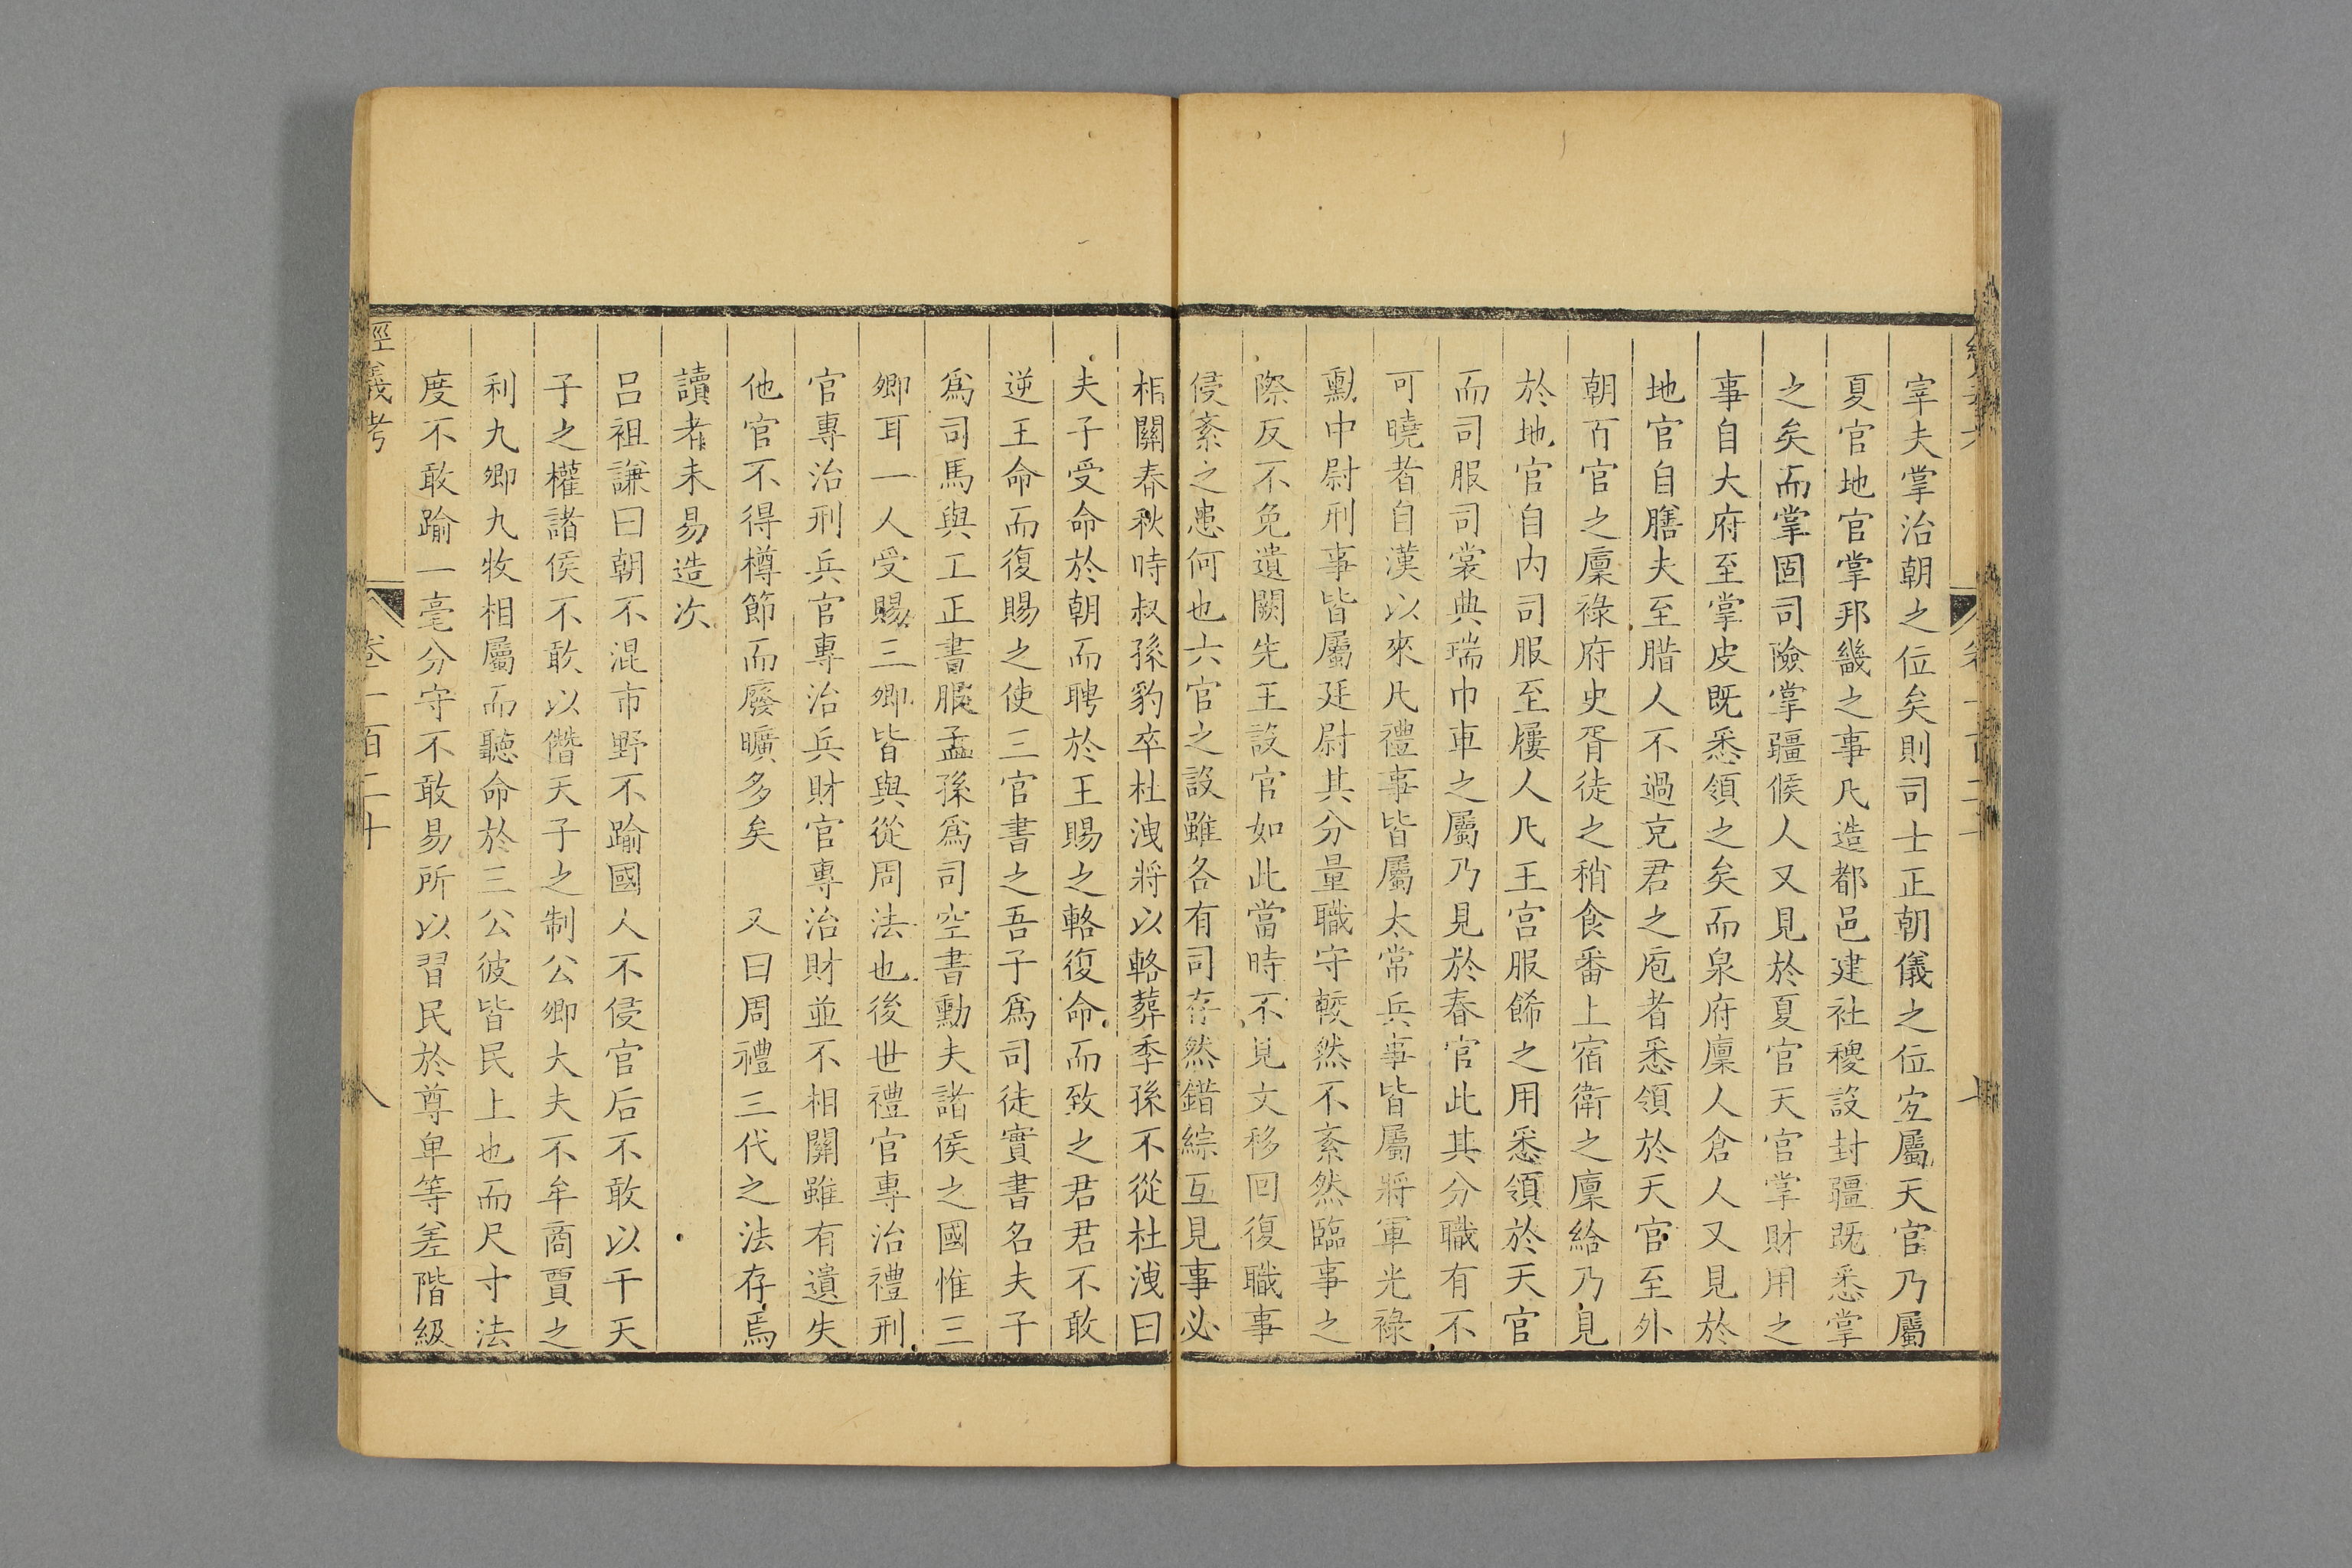 宰夫掌治朝之位矣則司士正朝儀之位宐屬天官乃屬
夏官地官掌邦畿之事凡造都邑建社稷設封疆既悉掌
之矣而掌固司險掌疆候人又見於夏官天官掌財用之
事自大府至掌皮既悉領之矣而泉府廩人倉人又見於
地官自膳夫至腊人不過充君之庖者悉領於天官至外
朝百官之廩祿府史胥徒之稍食番上宿衛之廩給乃見
於地官自内司服至屨人凡王宫服飾之用悉領於天官
而司服司裳典瑞巾車之屬乃見於春官此其分職有不
可曉者自漢以來凡禮事皆屬太常兵事皆屬將軍光祿
勲中尉刑事皆屬廷尉其分量職守較然不紊然臨事之
際反不免遺闕先王設官如此當時不見文移回復職事
侵紊之患何也六官之設雖各有司存然錯綜互見事必
相關春秋時叔孫豹卒杜洩將以輅葬季孫不從杜洩曰
夫子受命於朝而聘於王賜之輅復命而致之君君不敢
逆王命而復賜之使三官書之吾子爲司徒實書名夫子
爲司馬與工正書服孟孫爲司空書勳夫諸侯之國惟三
卿耳一人受賜三卿皆與從周法也後世禮官專治禮刑
官專治刑兵官專治兵財官專治財並不相關雖有遺失
他官不得樽節而廢曠多矣　又曰周禮三代之法存焉
讀者未易造次
呂祖謙曰朝不混市野不踰國人不侵官后不敢以干天
子之權諸侯不敢以僭天子之制公卿大夫不牟商賈之
利九卿九牧相屬而聽命於三公彼皆民上也而尺寸法
度不敢踰一毫分守不敢易所以習民於尊卑等差階級
經義考　卷一百二十　八